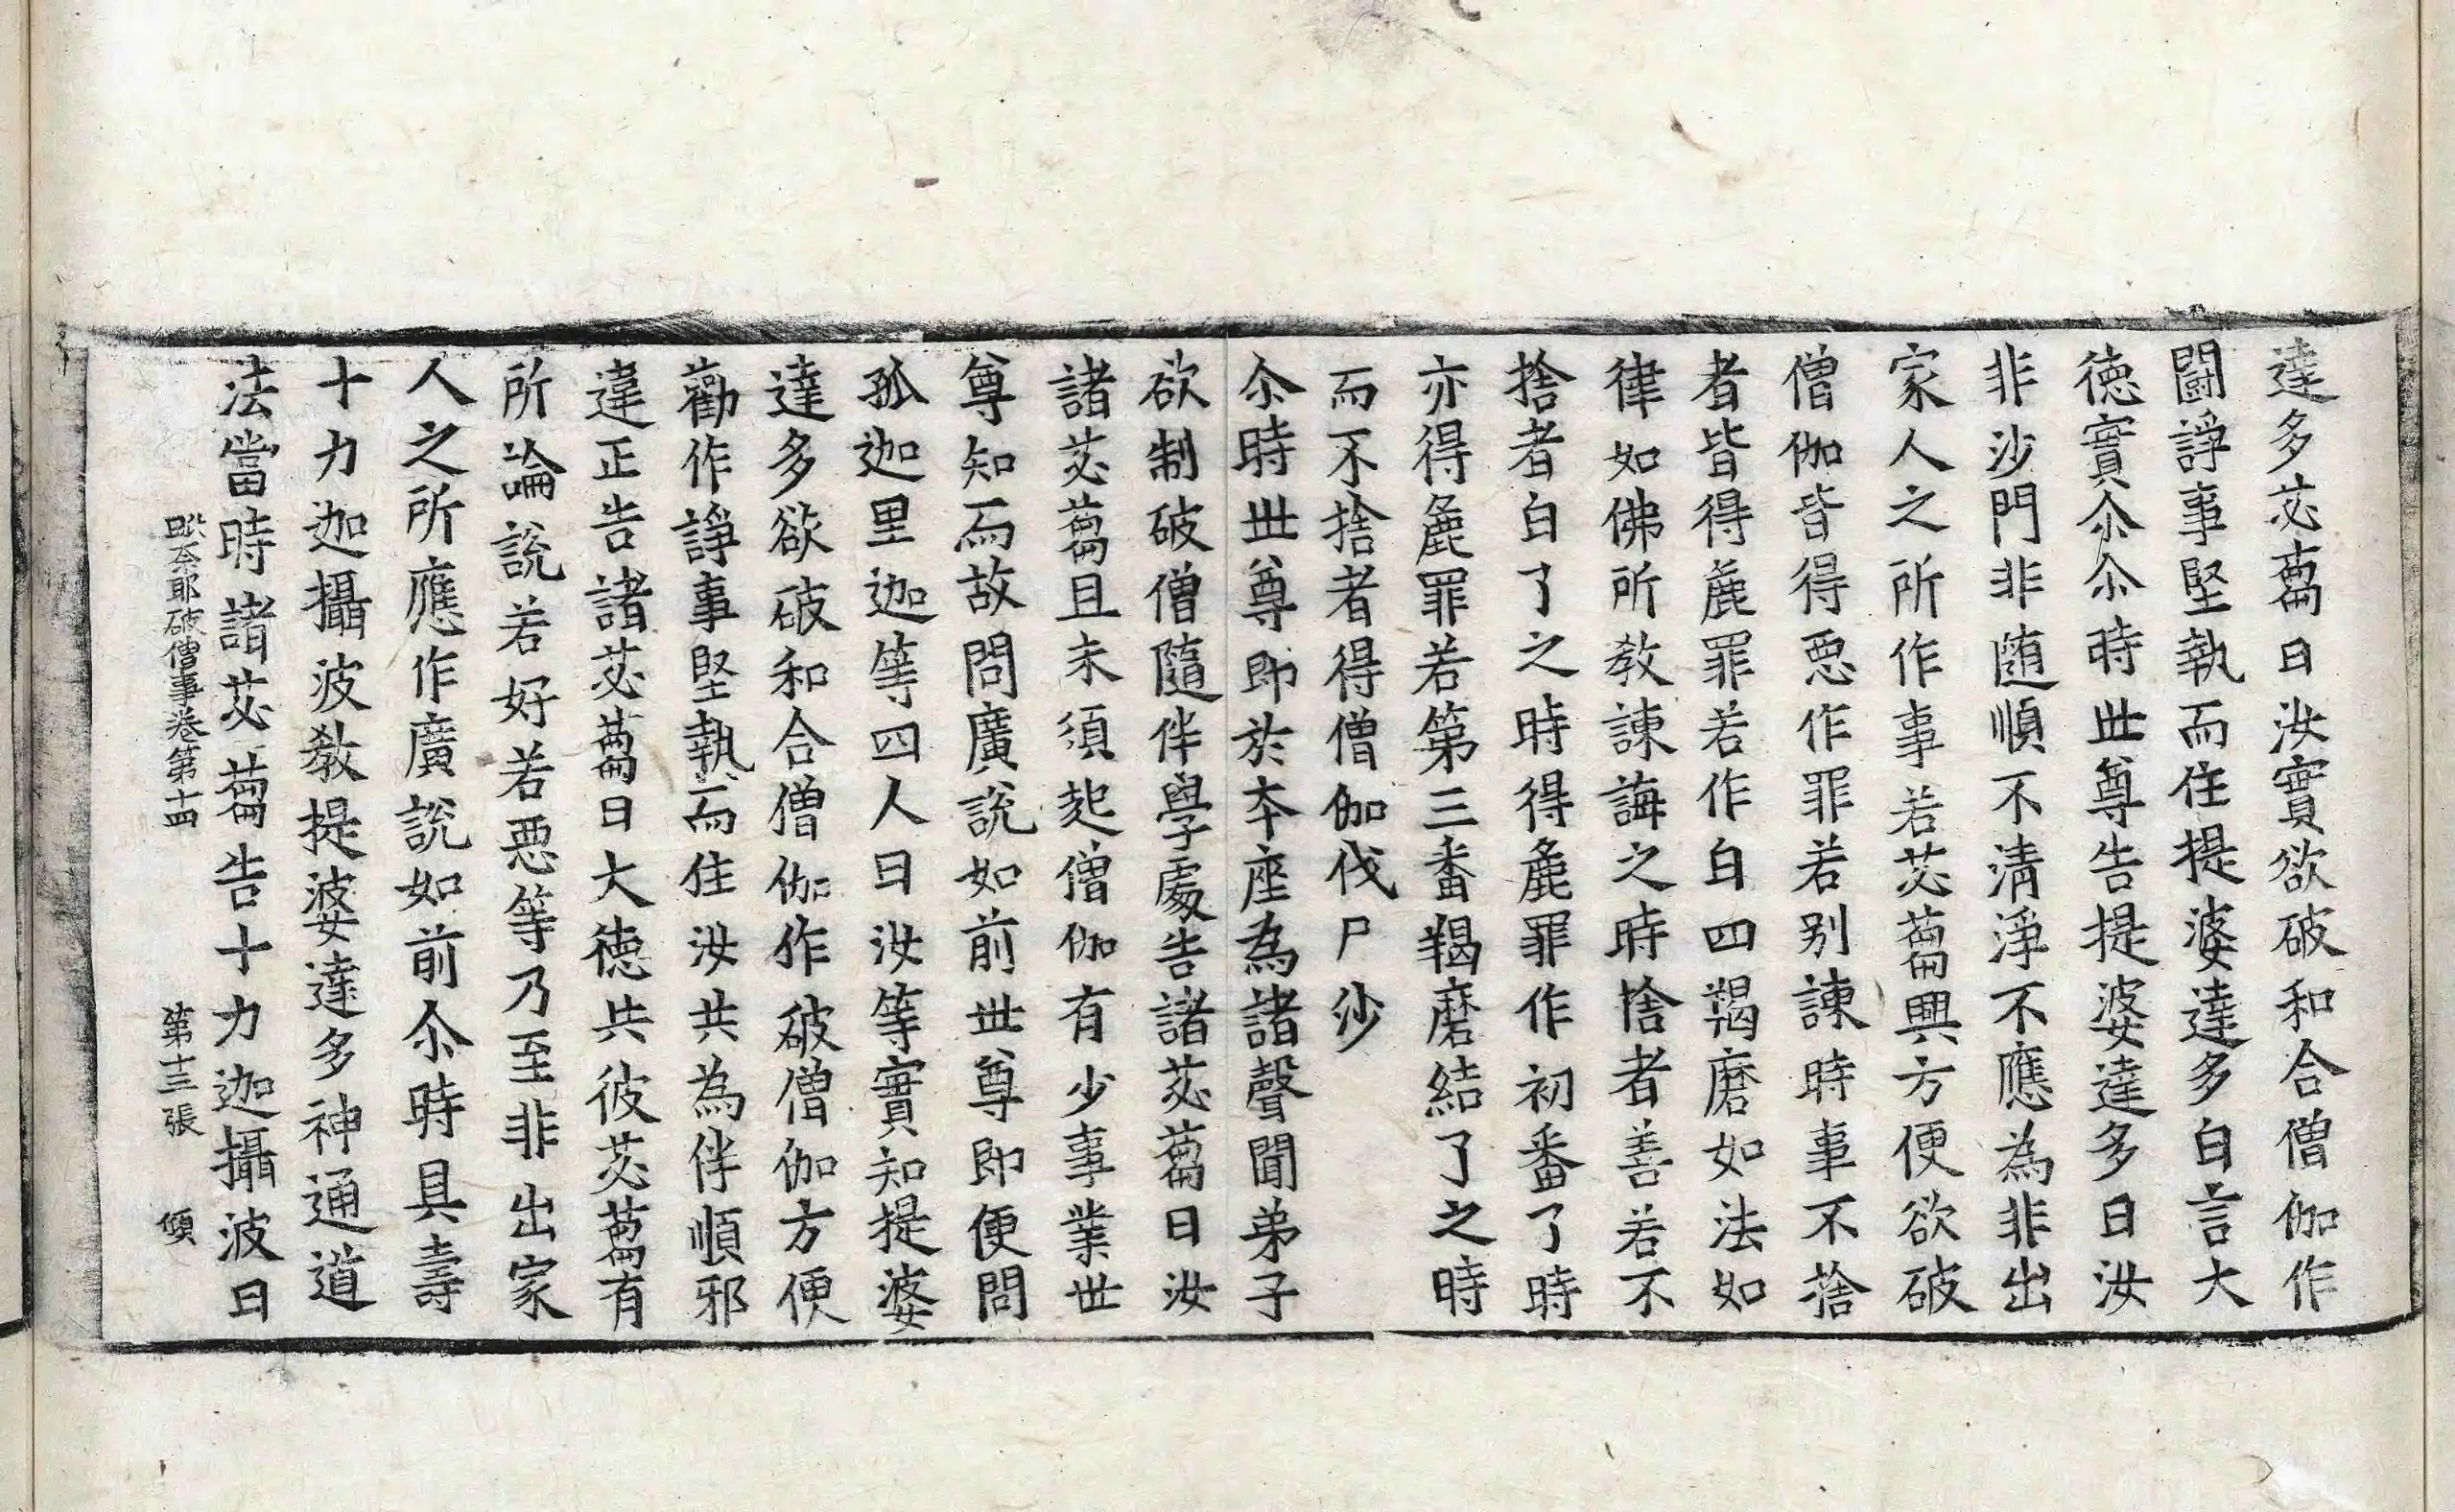 達多苾蒭曰汝實欲破和合僧伽作
鬪諍事堅執而住提婆達多白言大
徳實尒尒時世尊告提婆達多曰汝
非沙門非随順不清淨不應為非出
家人之所作事若苾蒭興方便欲破
僧伽皆得惡作罪若别諫時事不捨
者皆得麁罪若作白四羯磨如法如
律如佛所教諫誨之時捨者善若不
捨者白了之時得麁罪作初番了時
亦得麁罪若第三番羯磨結了之時
而不捨者得僧伽伐尸沙
尒時世尊即於本座為諸聲聞弟子
欲制破僧隨伴學處告諸苾蒭曰汝
諸苾蒭且未須起僧伽有少事業世
尊知而故問廣說如前世尊即便問
孤迦里迦等四人曰汝等實知提婆
達多欲破和合僧伽作破僧伽方便
勸作諍事堅執而住汝共為伴順邪
違正告諸苾蒭曰大徳共彼苾蒭有
所論說若好若惡等乃至非出家
人之所應作廣說如前尒時具壽
十力迦攝波教提婆達多神通道
法當時諸苾蒭告十力迦攝波曰
毗奈耶破僧事卷第十四 第十三張 傾